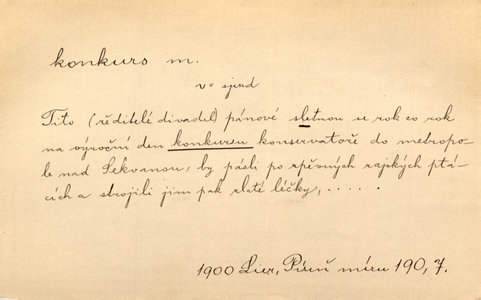 konkurs m.
ve sjezd
Tito (ředitelé divadel) pánové sletnou se rok co rok
na výroční den konkursu konservatoře do metropo-
le nad Sekvanou, by pásli po zpěvných rajských ptá-
cích a strojili jim pak zlaté léčky, .....
1900 Lier, Píseň míru 190, 7.